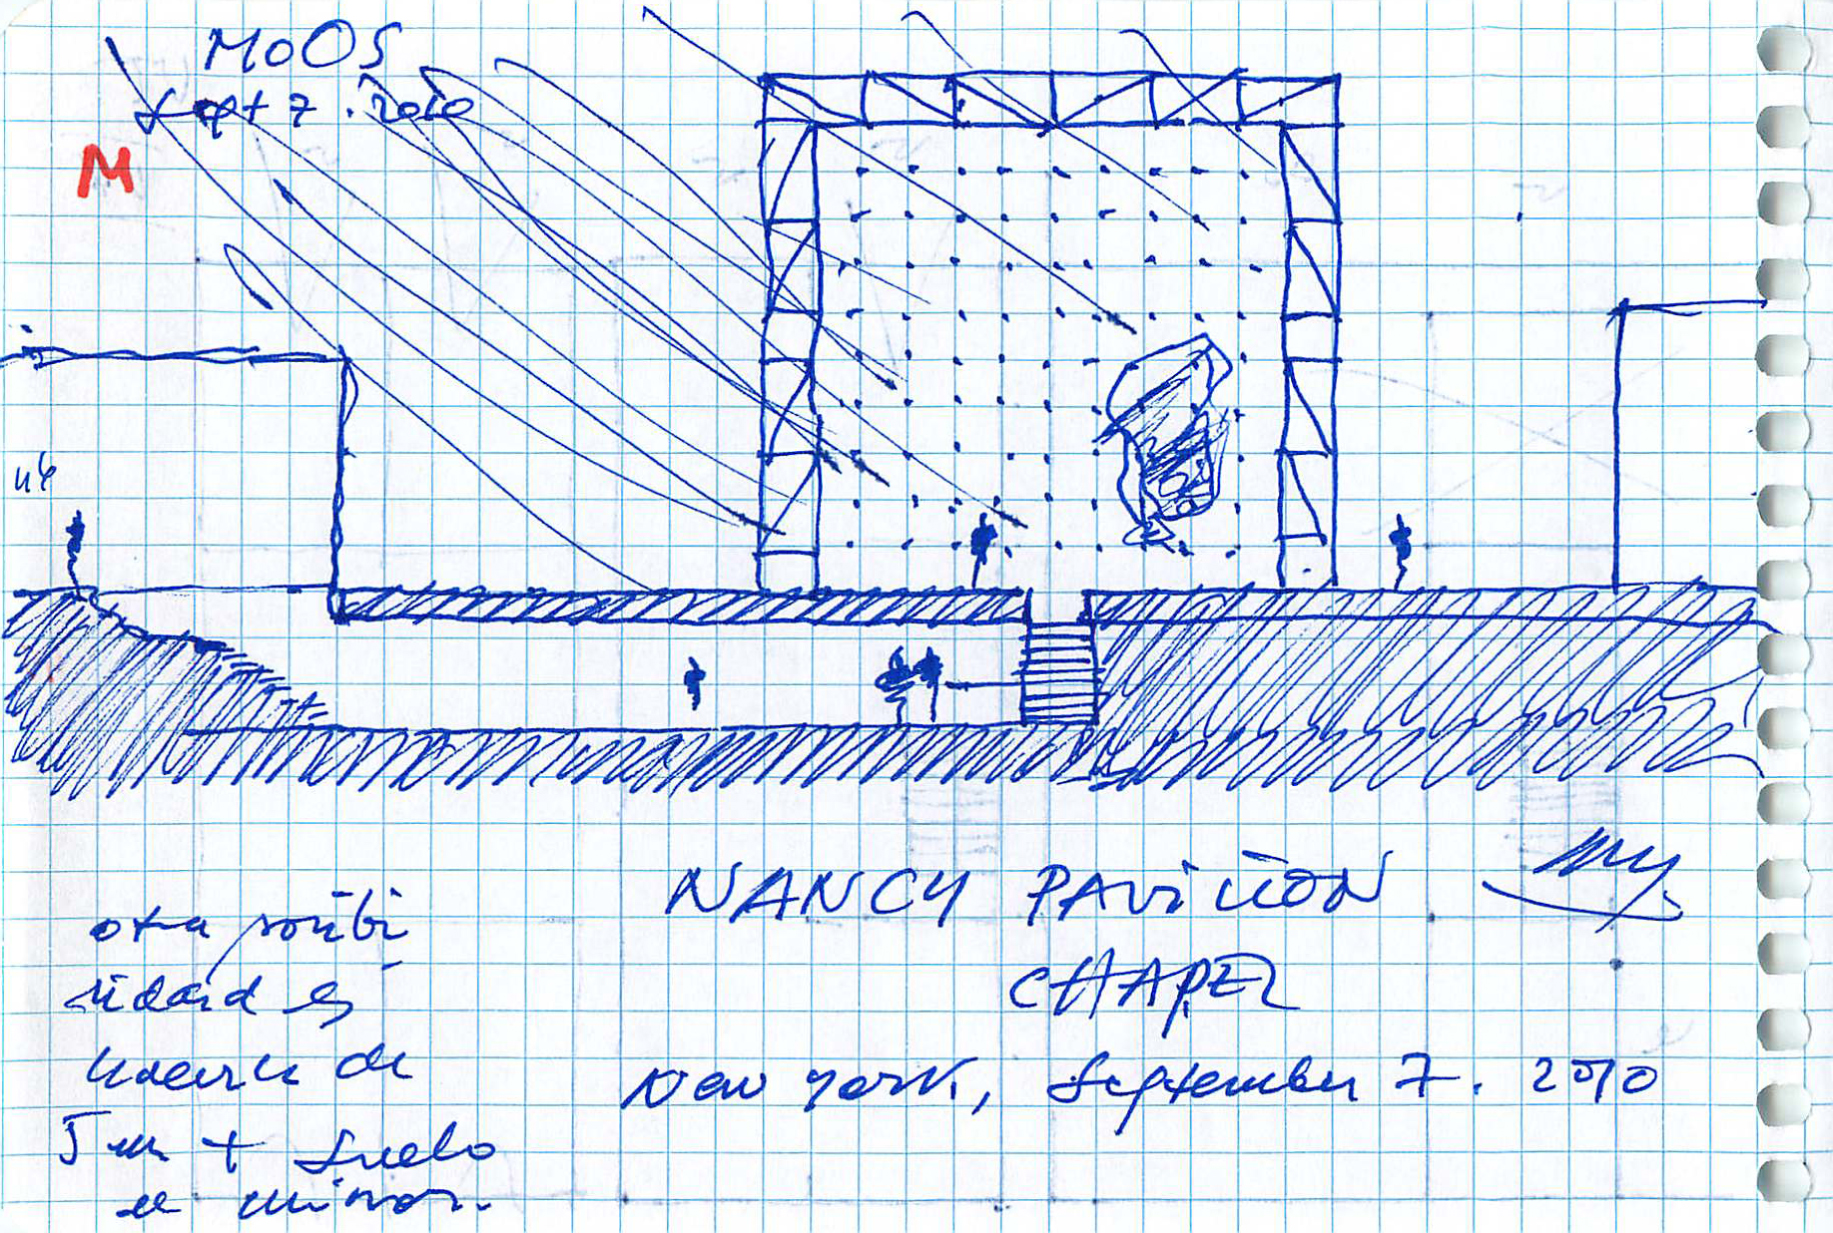 MoOS
Sept 7. 2010
M
NANCY PAViLLON
CHAPEL
New York, September 7. 2010
otra posibi
lidad es
hacerlo de
5 m + suelo